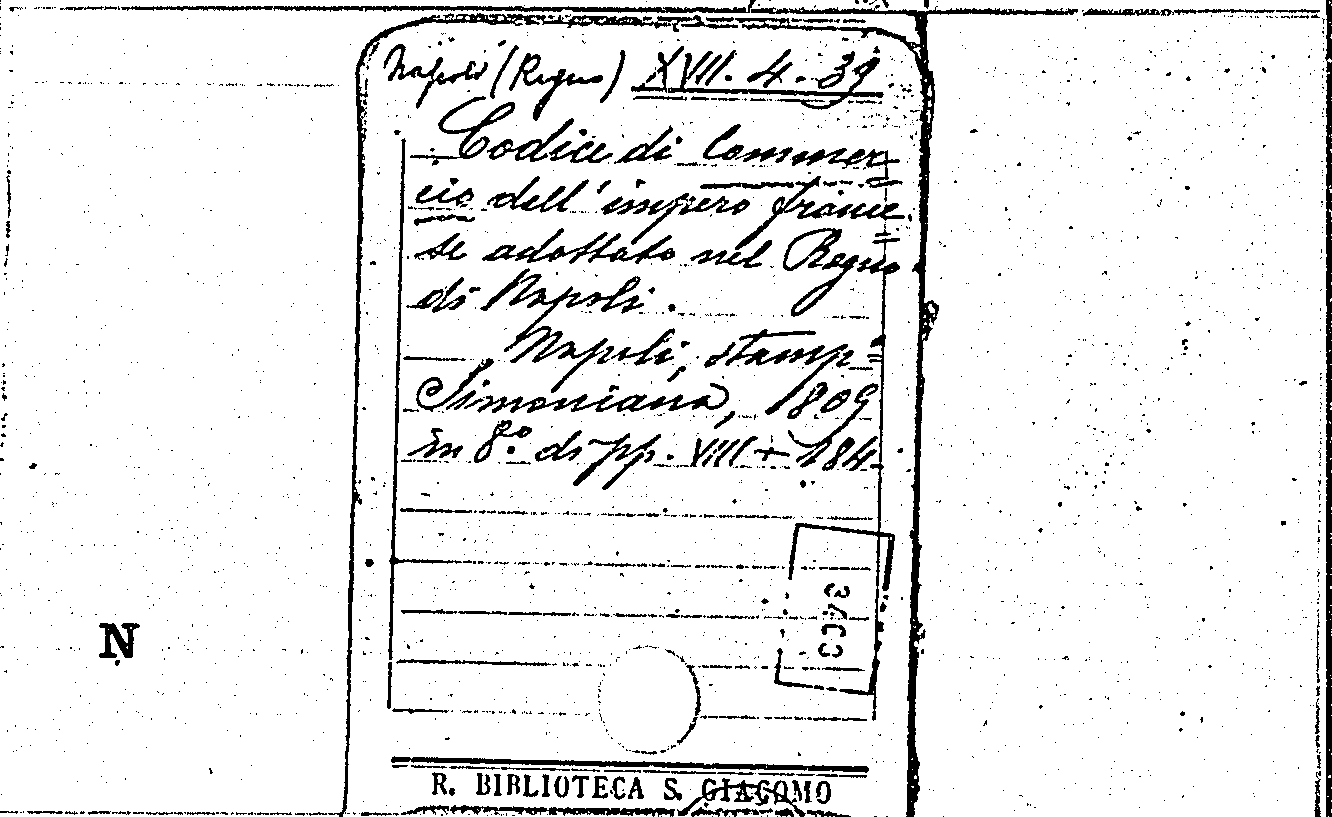 Napoli (Regno) XVII. 4. 39
Codice di Commer=
cio dell'impero france=
se adottato nel Regno
di Napoli.
Napoli, stamp=
Simoniana, 1809
in 8.º di pp. VIII + 184.
N
R. BIBLIOTECA S. GIACOMO